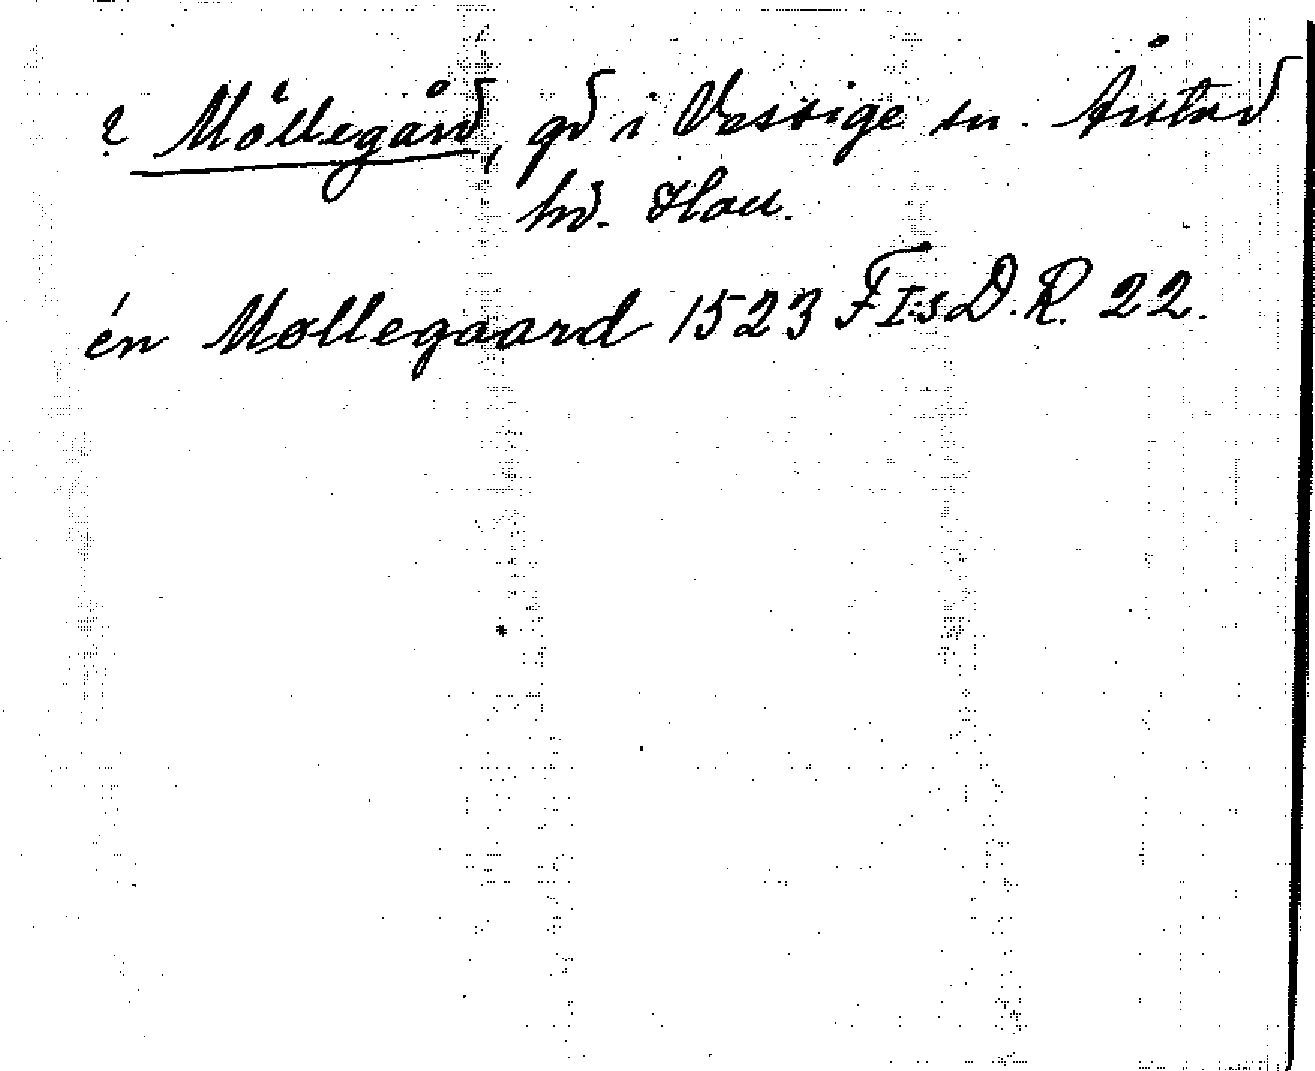 ? Möllegård, gd i Vessige sn. Årstad
hd. Hall.
én Møllegaard 1523 FIsD.R. 22.